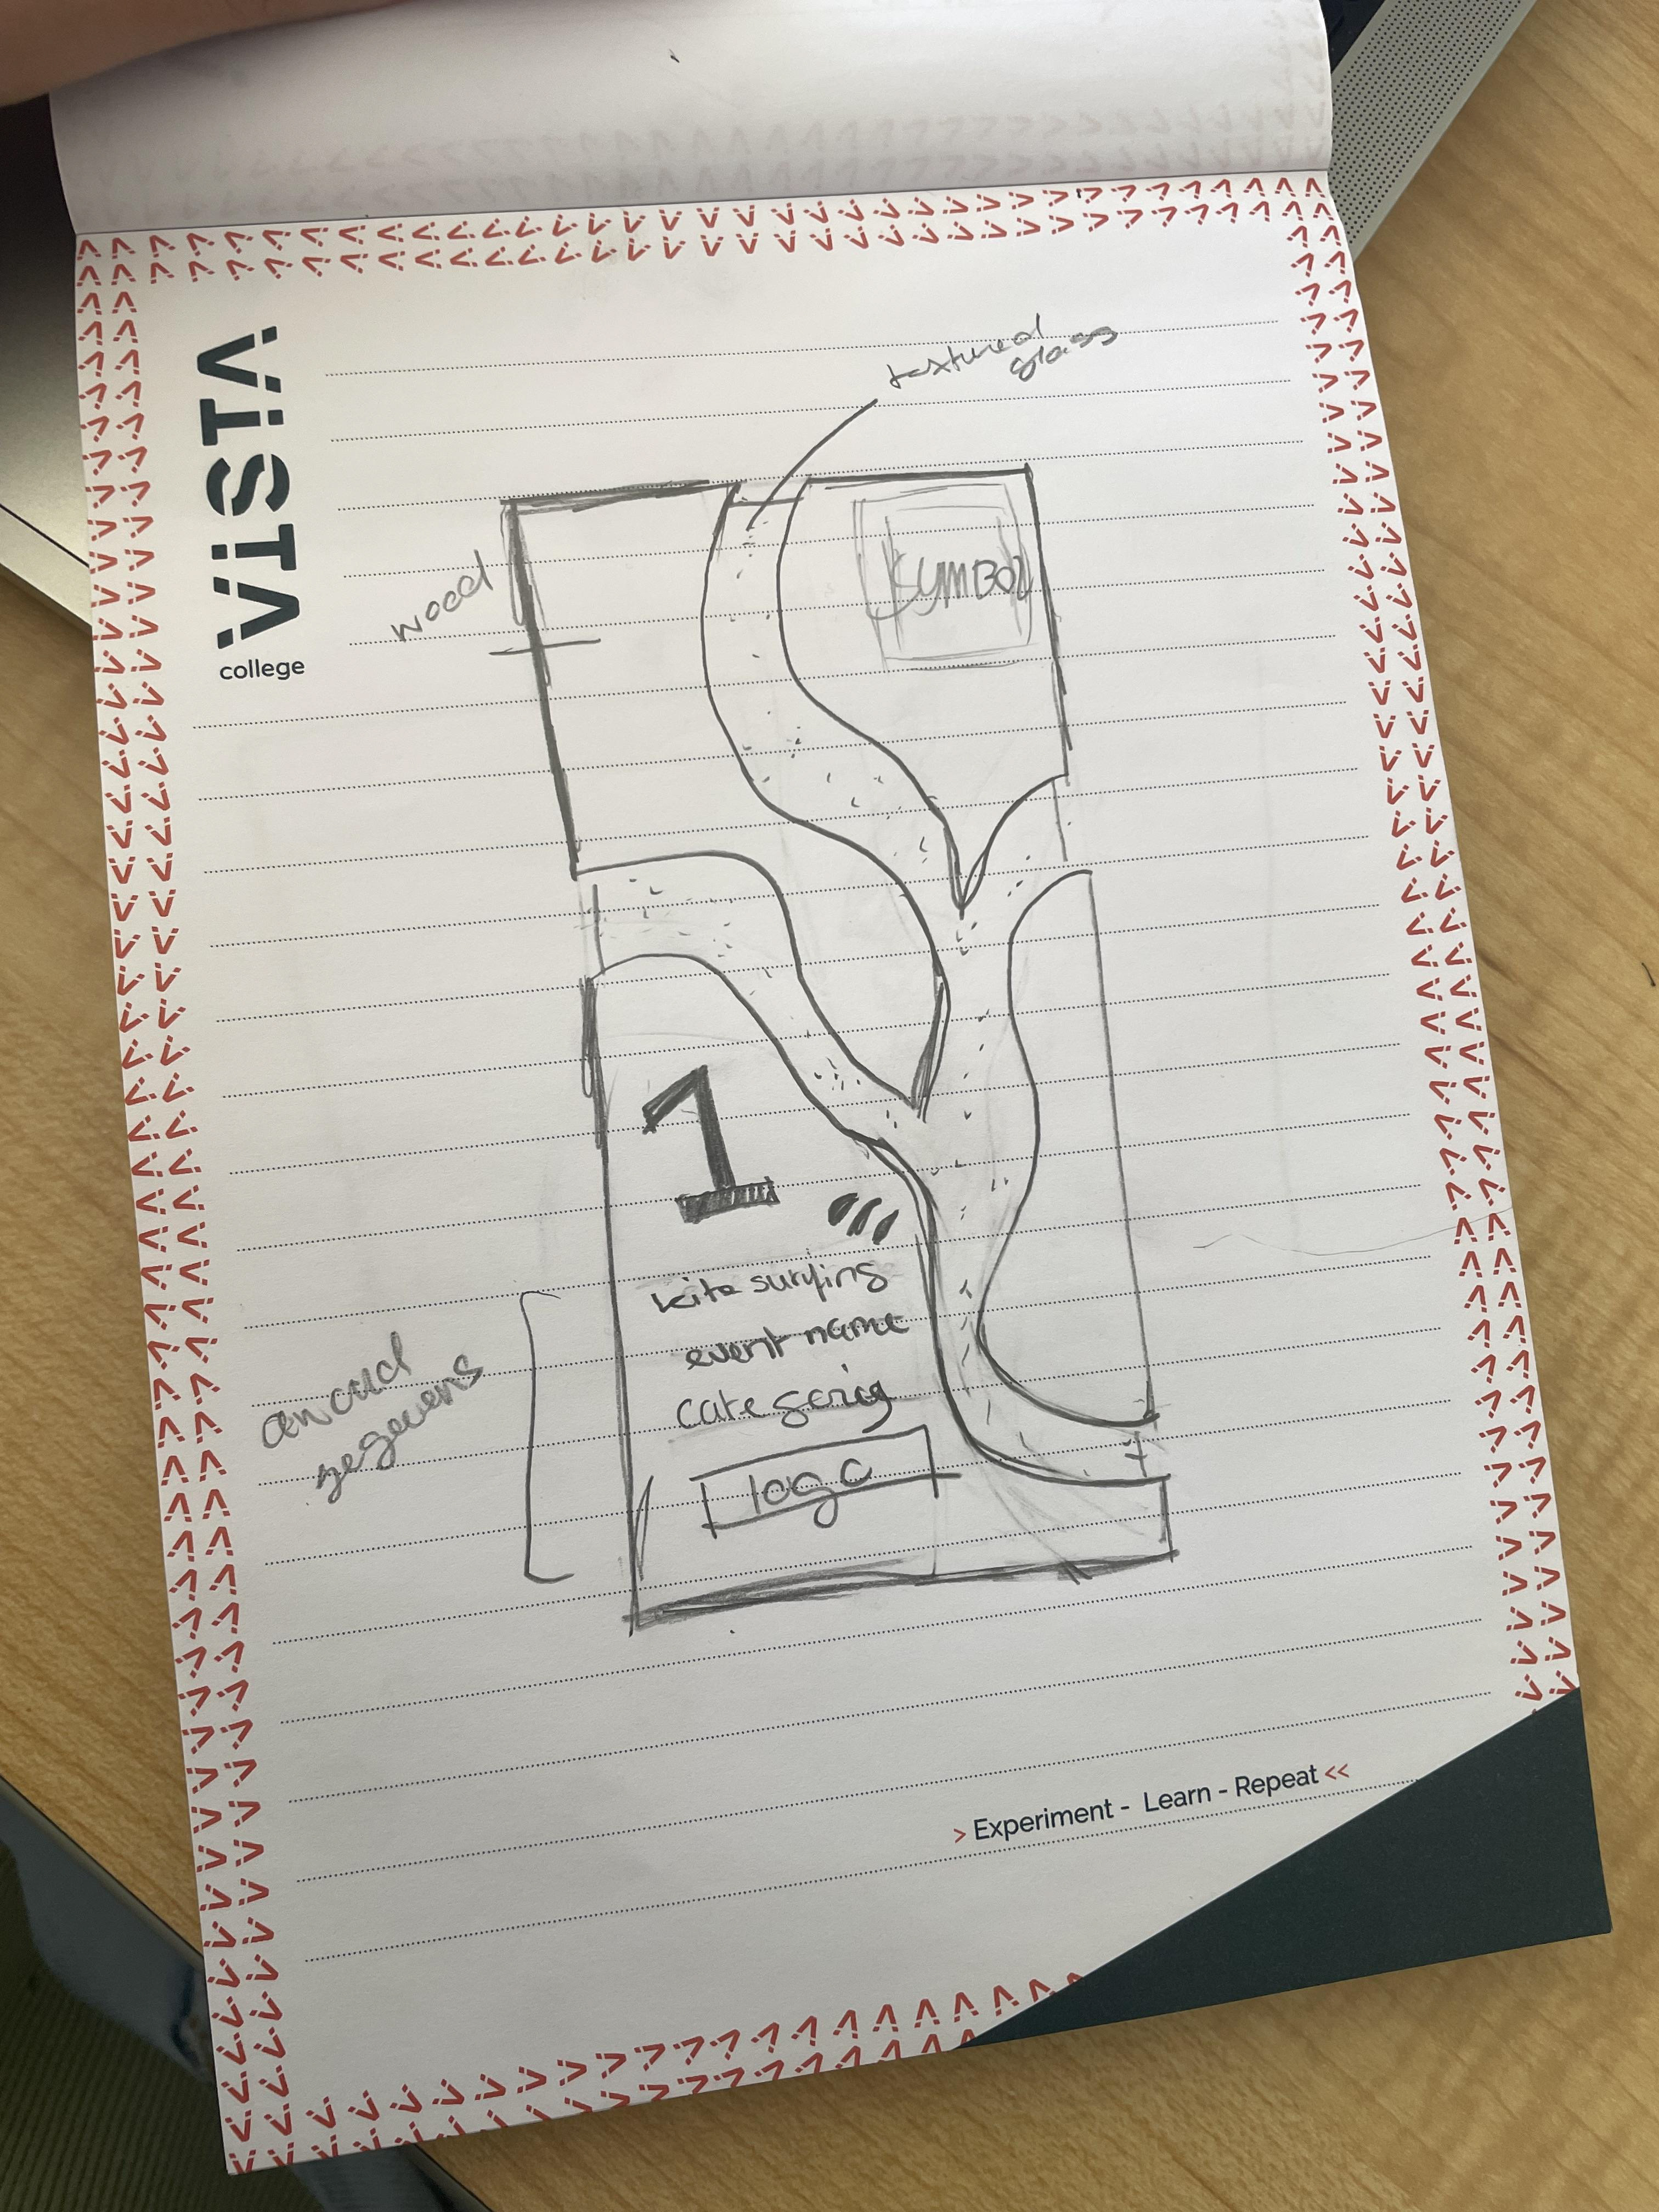 VISTA
college
textured
glass
wood
SYMBOL
1
kite surfing
event name
category
logo
award
gegevens
> Experiment - Learn - Repeat <<